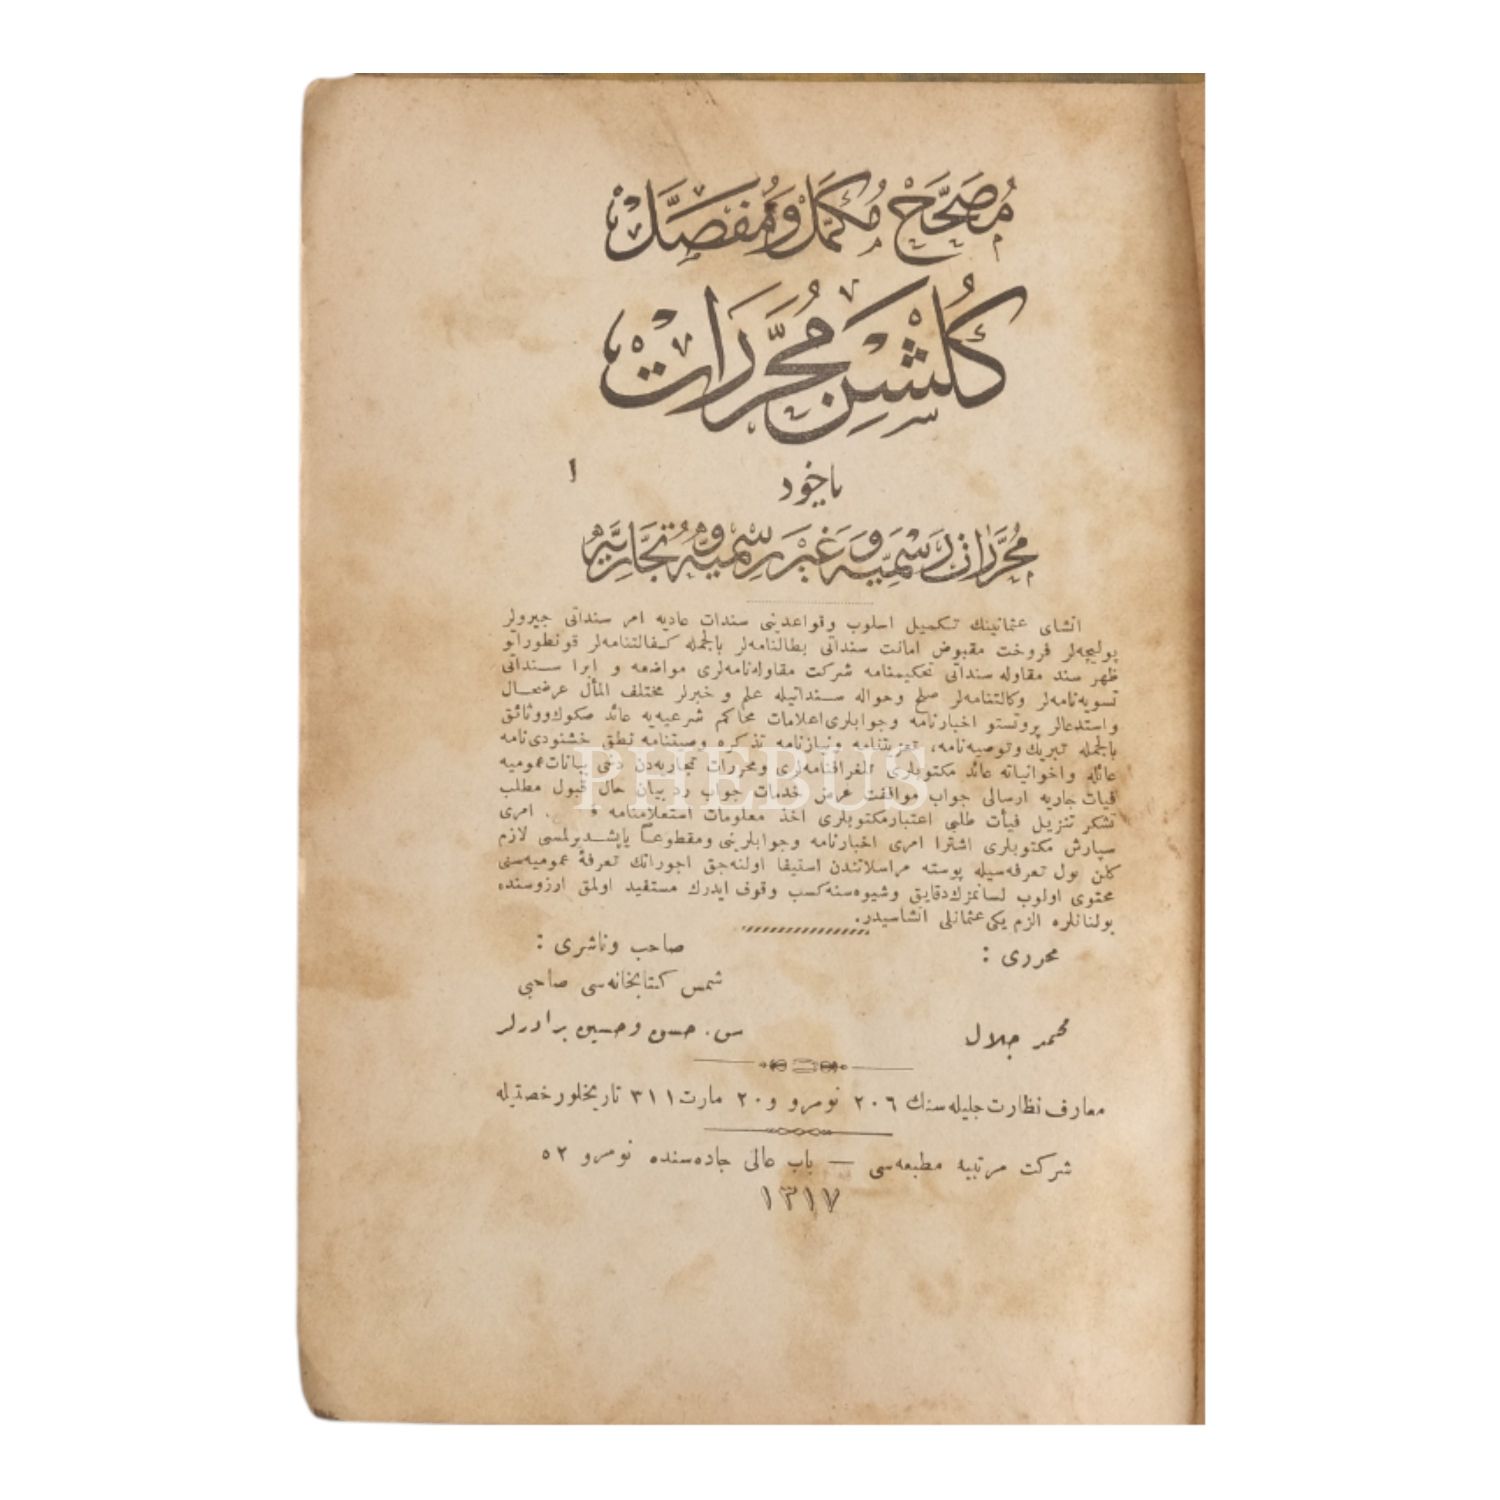 مُصَحَّحْ مُكَمَّلْ وَمُفَصَّلْ
كُلْشَنِ مُحَرَّرَاتْ
ياخود
مُحَرَّرَاتِ رَسْمِيَّه وَغَيْرِ رَسْمِيَّه وَتُجَّارِيَّه
انشای عثمانينك تكميل اسلوب وقواعدينی سندات عاديه امر سنداتی جيرولر
پوليچه‌لر فروخت مقبوض امانت سنداتی بطالنامه‌لر بالجمله كفالتنامه‌لر قونطوراتو
ظهر سند مقاوله سنداتی تحكيمنامه شركت مقاوله‌نامه‌لری مواضعه و ابرا سنداتی
تسويه‌نامه‌لر وكالتنامه‌لر صلح وحواله سنداتيله علم و خبرلر مختلف المأل عرضحال
واستدعالر پروتستو اخبارنامه وجوابلری اعلامات محاكم شرعيه‌يه عائد صكوك ووثائق
بالجمله تبريك وتوصيه‌نامه، تعزيتنامه ونيازنامه تذكره وصيتنامه نطق خشنودی‌نامه
عائله واخوانياته عائد مكتوبلری تلغرافنامه‌لری ومحررات تجاريه‌دن دخی بيانات عموميه
فيات جاريه ارسالی جواب موافقت عرض خدمات جواب رد بيان حال قبول مطلب
تشكر تنزيل فيأت طلبی اعتبارمكتوبلری اخذ معلومات استعلامنامه و . امری
سپارش مكتوبلری اشترا امری اخبارنامه وجوابلرينی ومقطوعاً ياپشديرلمسی لازم
كلن پول تعرفه‌سيله پوسته مراسلاتندن استيفا اولنه‌جق اجوراتك تعرفهٔ عموميه‌سنی
محتوی اولوب لسانمزك دقايق وشيوه‌سنه كسب وقوف ايدرك مستفيد اولمق ارزوسنده
بولنانلره الزم يكی عثمانلی انشاسيدر.
محرری :
محمد جلال
صاحب وناشری :
شمس كتابخانه‌سی صاحبی
س. حسن وحسين برادرلر
معارف نظارت جليله‌سنك ٢٠٦ نومرو و ٢٠ مارت ٣١١ تاريخلور خصتيله
شركت مرتبيه مطبعه‌سی — باب عالی جاده‌سنده نومرو ٥٢
١٣١٧
PHEBUS